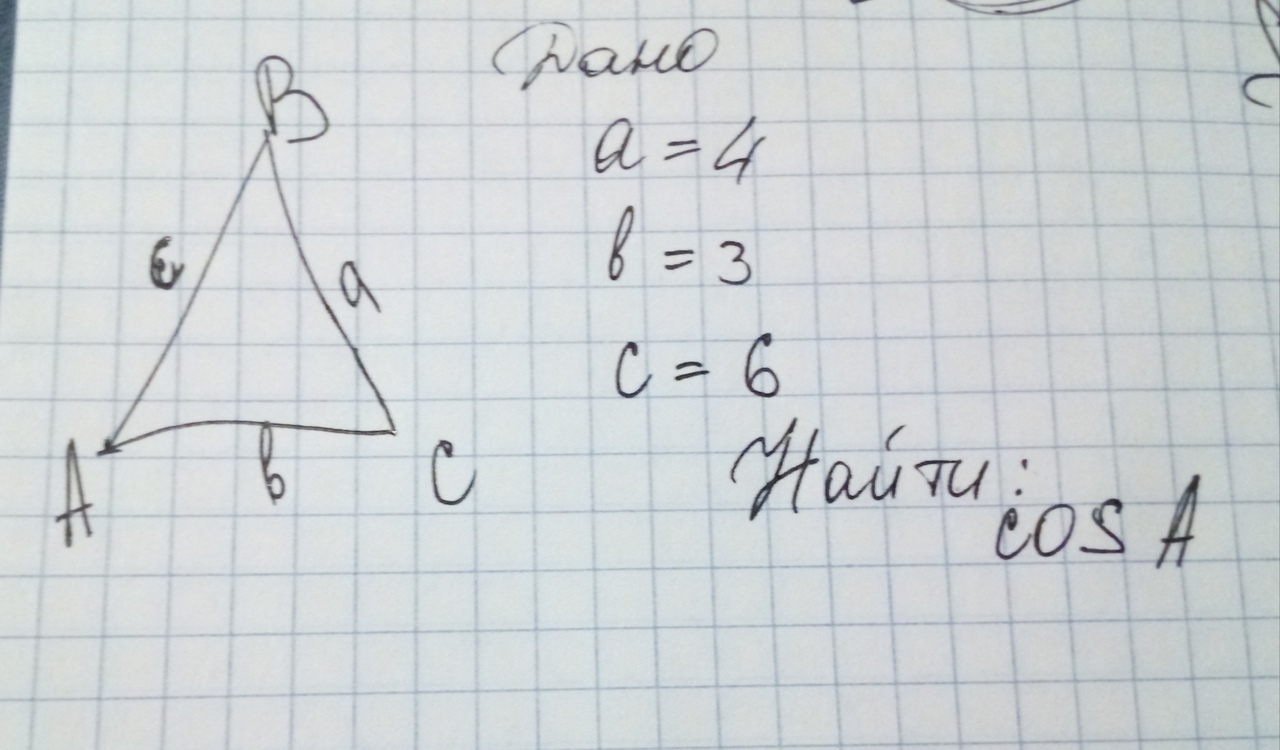 Дано
a = 4
b = 3
c = 6
Найти:
cos A
B
c
a
A
b
C